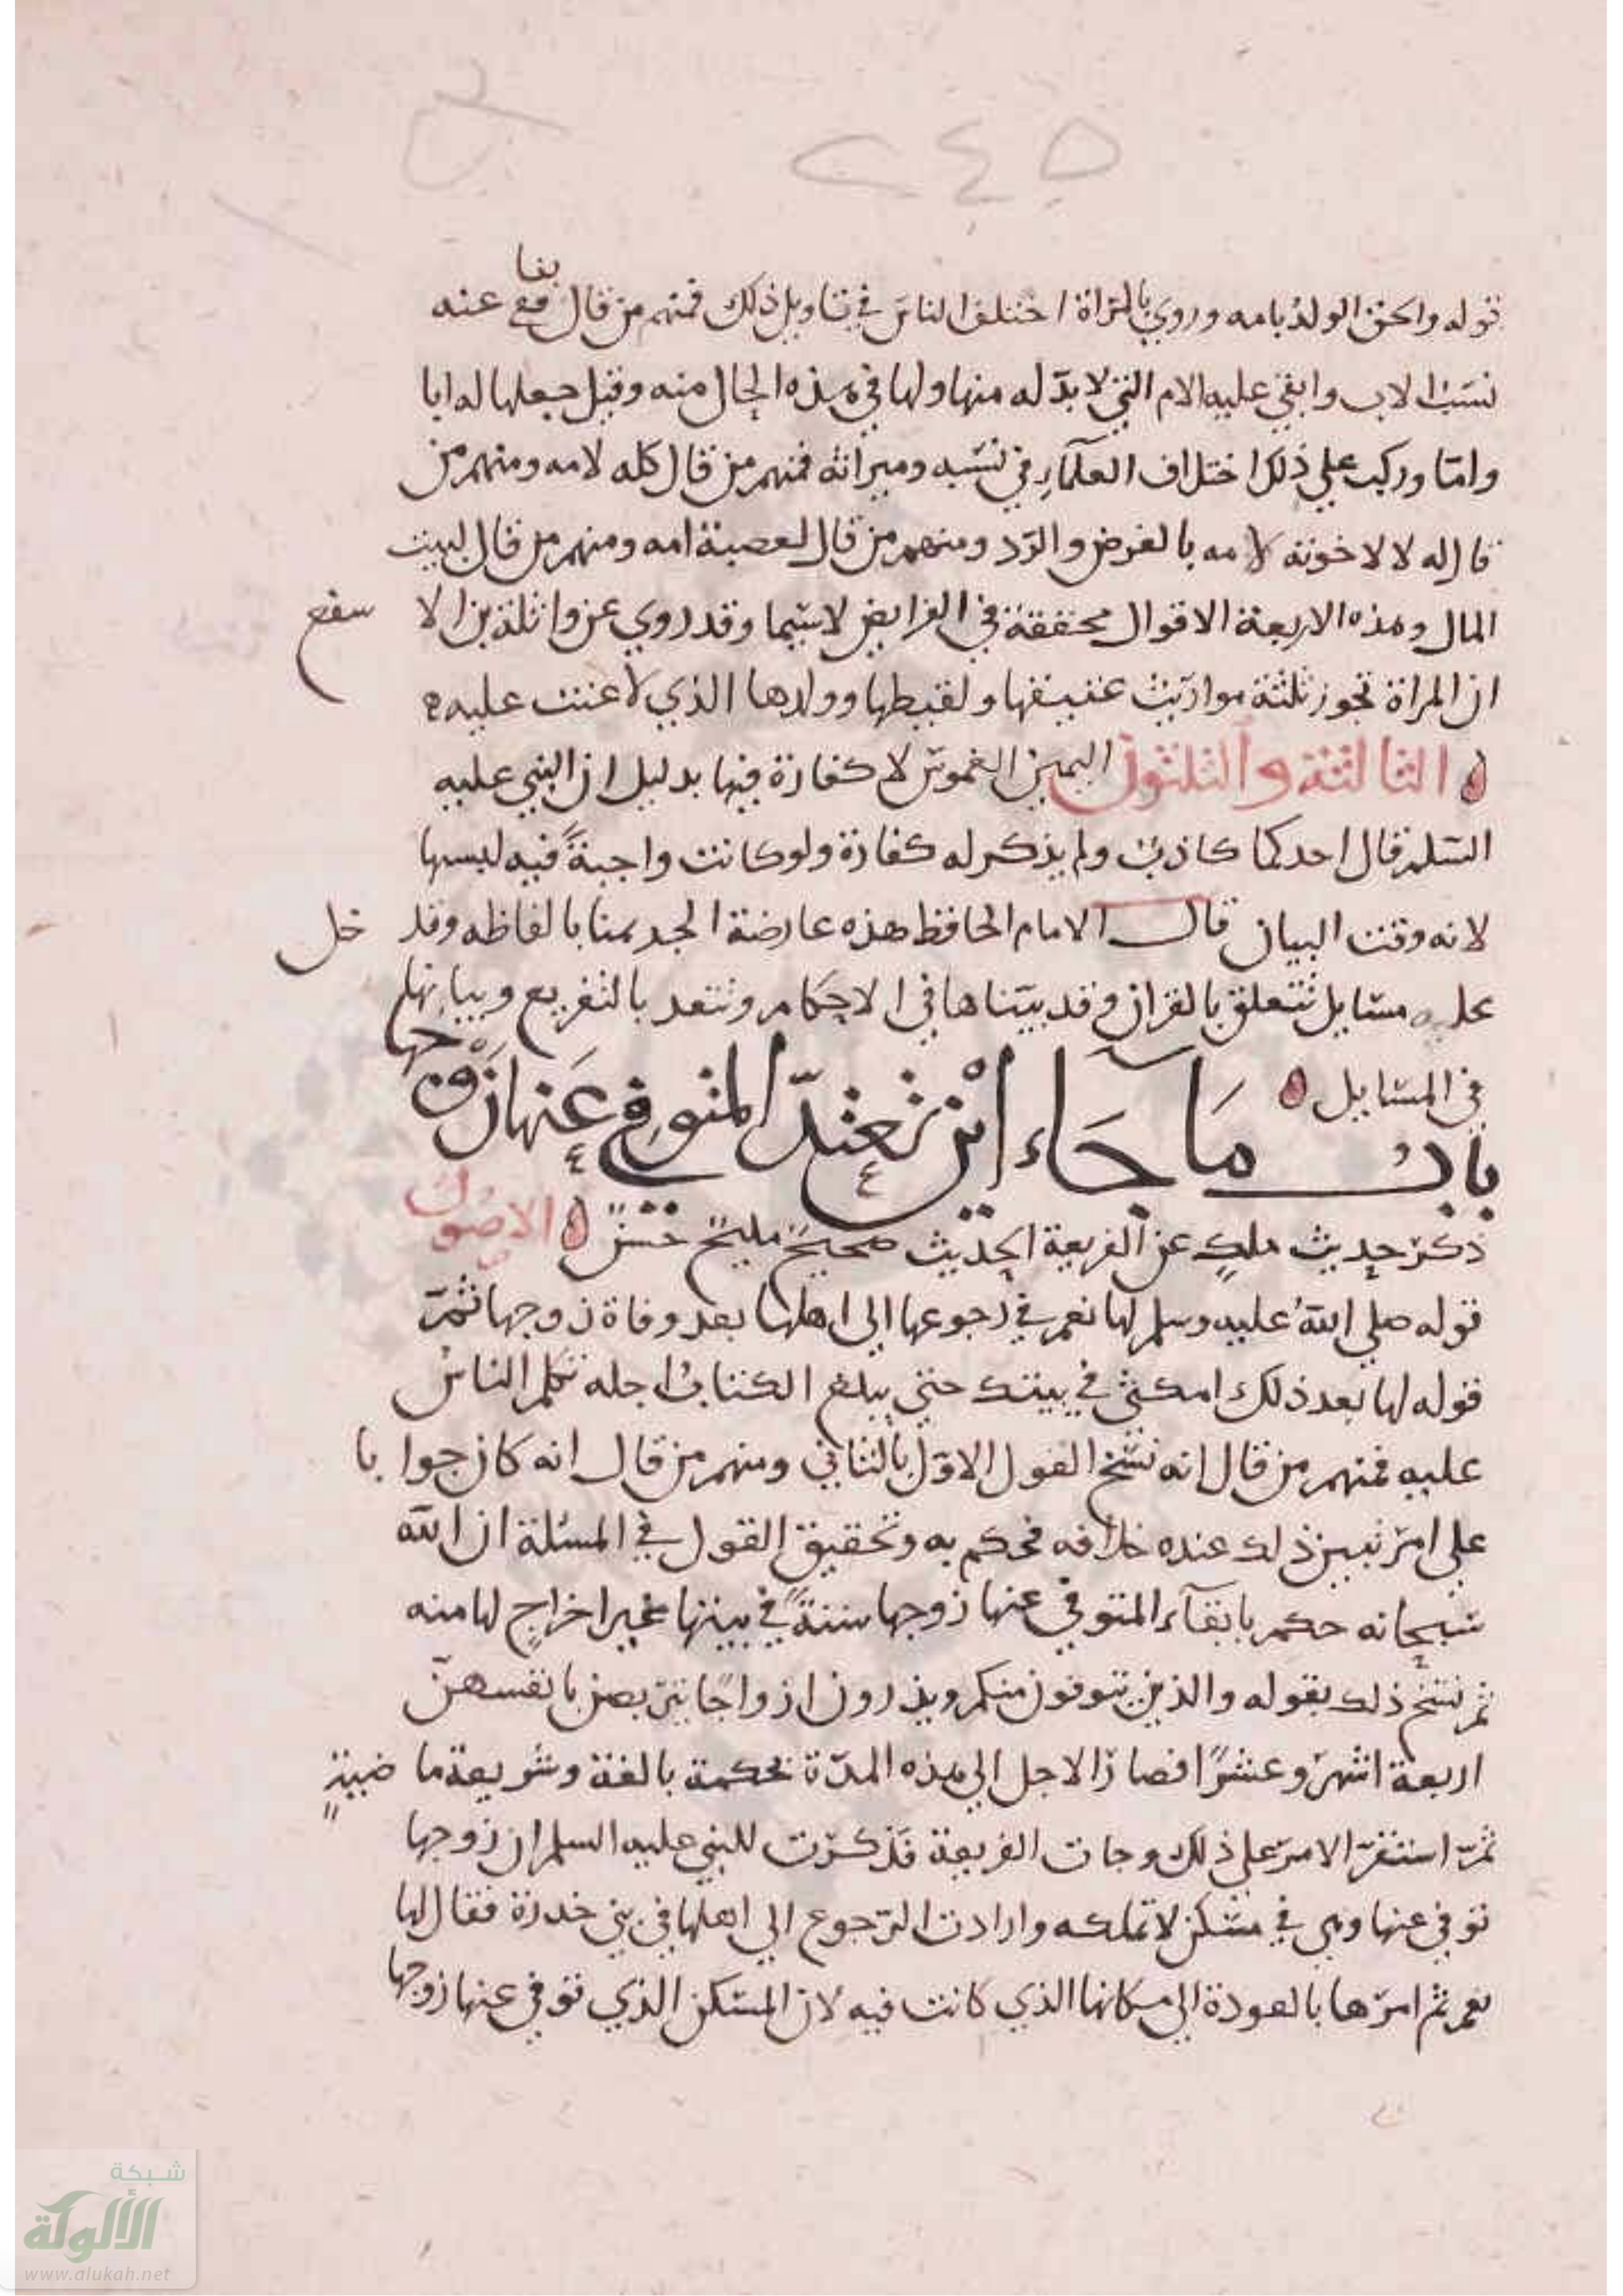 ٢٤٥
قوله والحق الولد بامه وروي بالمراة اختلف الناس في تاويل ذلك فمنهم من قال معناه نفا عنه
نسب الاب وابقي عليه الام التي لا بد له منها ولها في هذه الحال منه وقيل جعلها له ابا
واما وركب علي ذلك اختلاف العلماء في نسبه وميراثه فمنهم من قال كله لامه ومنهم من
قال له لا لاخوته لامه بالفرض والرد ومنهم من قال لعصبة امه ومنهم من قال لبيت
المال وهذه الاربعة الاقوال محققة في الفرايض لا سيما وقد روي عن واثلة بن الا سقع
ان المراة تحوز ثلثة مواريث عتيقها ولقيطها وولدها الذي لاعنت عليه
الثالثة والثلثون اليمين الغموس لا كفارة فيها بدليل ان النبي عليه
السلم قال احدكما كاذب ولم يذكر له كفارة ولو كانت واجبة فيه لبينها
لانه وقت البيان قال الامام الحافظ هذه عارضة الجد بمنا بالفاظه وقد خل
عليه مسايل تتعلق بالقران وقد بيناها في الاحكام وتتعد بالتفريع وبيانها
في المسايل
باب ما جاء اين تعتد المتوفي عنها زوجها
ذكر حديث ملك عن الفريعة الحديث صحيح مليح حسن الاصول
قوله صلي الله عليه وسلم لها نعم في رجوعها الي اهلها بعد وفاة زوجها ثم
قوله لها بعد ذلك امكثي في بيتك حتي يبلغ الكتاب اجله تكلم الناس
عليه فمنهم من قال انه نسخ القول الاول بالثاني ومنهم من قال انه كان جوا با
علي امر تبين ذلك عنده خلافه فحكم به وتحقيق القول في المسئلة ان الله
سبحانه حكم بابقاء المتوفي عنها زوجها سنة في بيتها غير اخراج لها منه
ثم نسخ ذلك بقوله والذين يتوفون منكم ويذرون ازواجا يتربصن بانفسهن
اربعة اشهر وعشرا فصار الاجل الي هذه المدة بحكمة بالغة وشريعة ما ضية
ثم استقر الامر علي ذلك وجات الفريعة فذكرت للنبي عليه السلم ان زوجها
توفي عنها وهي في مسكن لا تملكه وارادت الرجوع الي اهلها في بني خدرة فقال لها
نعم ثم امرها بالعودة الي مكانها الذي كانت فيه لان المسكن الذي توفي عنها زوجها
شبكة
الألوكة
www.alukah.net